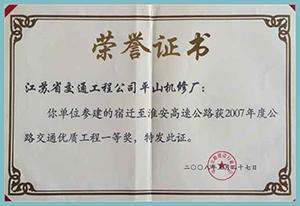 荣誉证书
江苏省交通工程公司平山机修厂：
你单位参建的宿迁至淮安高速公路获2007年度公
路交通优质工程一等奖，特发此证。
二〇〇八年 月 十七日